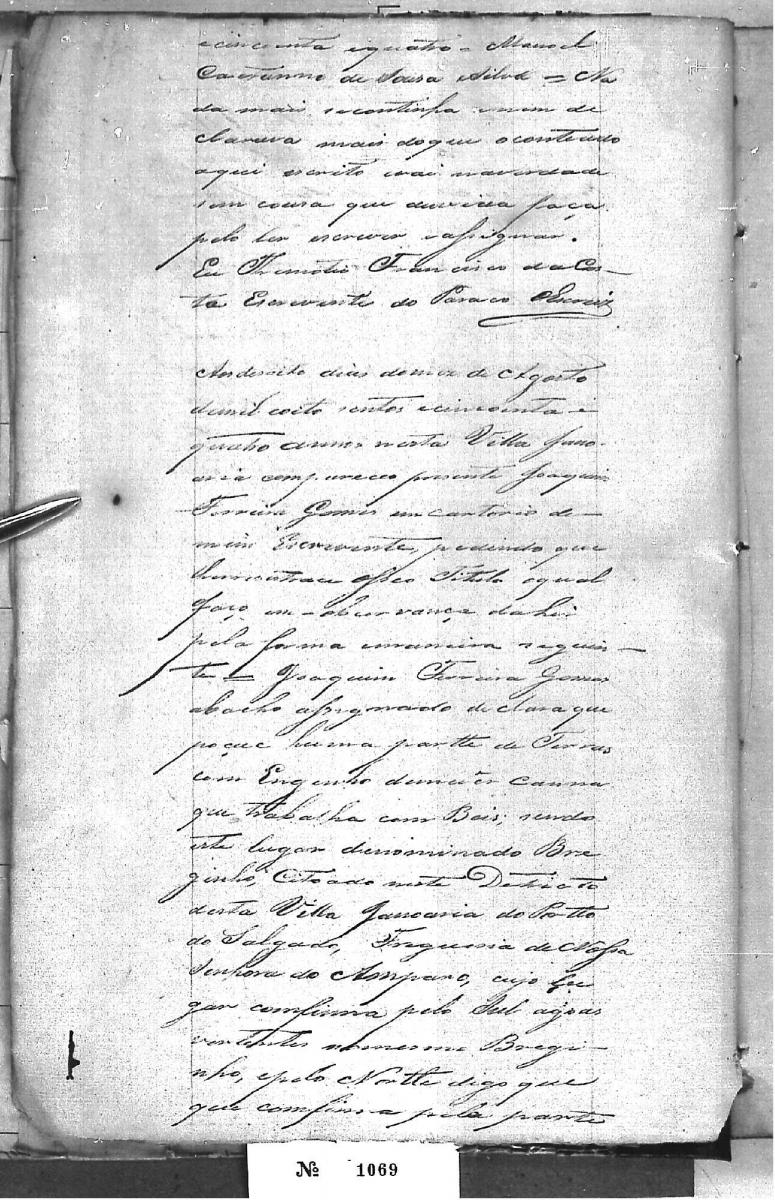 ecincoenta equatro = Manoel
Caetanno de Sousa eSilva = Na
da mais secontinha enem de
clarava mais doque oconteudo
aqui escrito evai naverdade
sem cousa que duvida faça
pelo ler escrever eassignar.
Eu Themotio Francisco da Cos-
ta Escrevente do Paraco oEscrevi

Aosdesoito dias domez de Agosto
demil eoito sentos ecincoenta e
quatro annos nesta Villa Janu-
aria compareceo presente Joaquim
Ferreira Gomes em cartorio de
mim Escrevente, pedindo que
lheregistrace oSeo Titulo oqual
faço em observança da Lei
pela forma emaneira seguin-
te = Joaquim Ferreira Gomes
abacho assignado declara que
poçue huma partte de Terras
com Engenho demoêr canna
que trabalha com Bois; sendo
este lugar denominado Bre
ginho, Citoado neste Destricto
desta Villa Januaria do Portto
do Salgado, Freguesia de Nossa
Senhora do Amparo, cujo lu
gar comfinna pelo Sul agoas
vertentes nomesmo Bregi-
nho, epelo Nortte digo que
que comfinna pela parte
Nº 1069